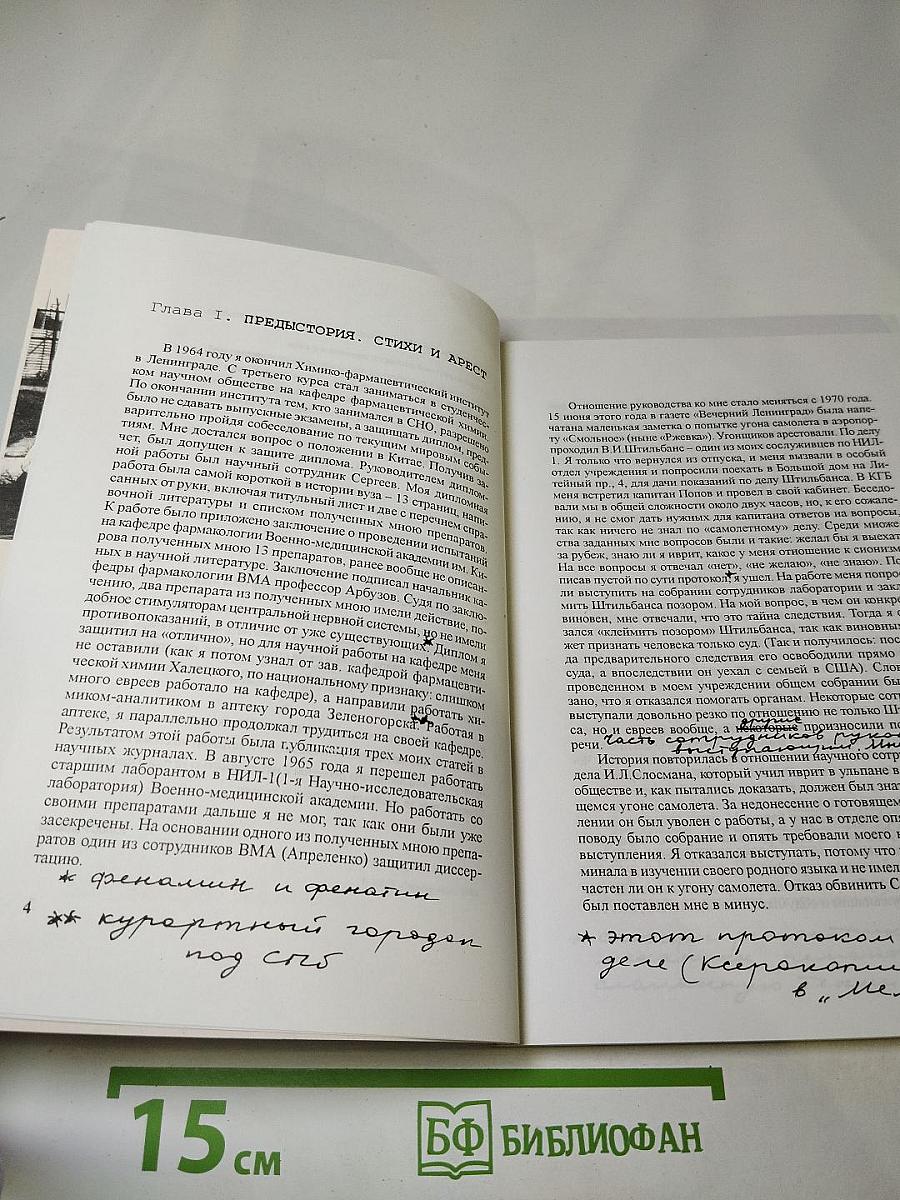 Глава I. ПРЕДЫСТОРИЯ. СТИХИ И АРЕСТ
В 1964 году я окончил Химико-фармацевтический институт
в Ленинграде. С третьего курса стал заниматься в студенчес-
ком научном обществе на кафедре фармацевтической химии.
По окончании института тем, кто занимался в СНО, разрешено
было не сдавать выпускные экзамены, а защищать диплом, пред-
варительно пройдя собеседование по текущим мировым собы-
тиям. Мне достался вопрос о положении в Китае. Получив за-
чет, был допущен к защите диплома. Руководителем диплом-
ной работы был научный сотрудник Сергеев. Моя дипломная
работа была самой короткой в истории вуза – 13 страниц, напи-
санных от руки, включая титульный лист и две с перечнем спра-
вочной литературы и списком полученных мною препаратов.
К работе было приложено заключение о проведении испытаний
на кафедре фармакологии Военно-медицинской академии им. Ки-
рова полученных мною 13 препаратов, ранее вообще не описан-
ных в научной литературе. Заключение подписал начальник ка-
федры фармакологии ВМА профессор Арбузов. Судя по заклю-
чению, два препарата из полученных мною имели действие, по-
добное стимуляторам центральной нервной системы, но не имели
противопоказаний, в отличие от уже существующих.* Диплом я
защитил на «отлично», но для научной работы на кафедре меня
не оставили (как я потом узнал от зав. кафедрой фармацевти-
ческой химии Халецкого, по национальному признаку: слишком
много евреев работало на кафедре), а направили работать хи-
миком-аналитиком в аптеку города Зеленогорска.** Работая в
аптеке, я параллельно продолжал трудиться на своей кафедре.
Результатом этой работы была публикация трех моих статей в
научных журналах. В августе 1965 года я перешел работать
старшим лаборантом в НИЛ-1(1-я Научно-исследовательская
лаборатория) Военно-медицинской академии. Но работать со
своими препаратами дальше я не мог, так как они были уже
засекречены. На основании одного из полученных мною препа-
ратов один из сотрудников ВМА (Апреленко) защитил диссер-
тацию.
* фенамин и фенатин
4
** курортный городок
под СПб
Отношение руководства ко мне стало меняться с 1970 года.
15 июня этого года в газете «Вечерний Ленинград» была напе-
чатана маленькая заметка о попытке угона самолета в аэропор-
ту «Смольное» (ныне «Ржевка»). Угонщиков арестовали. По делу
проходил В.И.Штильбанс – один из моих сослуживцев по НИЛ-
1. Я только что вернулся из отпуска, и меня вызвали в особый
отдел учреждения и попросили поехать в Большой дом на Ли-
тейный пр., 4, для дачи показаний по делу Штильбанса. В КГБ
меня встретил капитан Попов и провел в свой кабинет. Беседо-
вали мы в общей сложности около двух часов, но, к его сожале-
нию, я не смог дать нужных для капитана ответов на вопросы,
так как ничего не знал по «самолетному» делу. Среди множе
ства заданных мне вопросов были и такие: желал бы я выехат
за рубеж, знаю ли я иврит, какое у меня отношение к сионизм
На все вопросы я отвечал «нет», «не желаю», «не знаю». По
писав пустой по сути протокол*, я ушел. На работе меня попро
ли выступить на собрании сотрудников лаборатории и закл
мить Штильбанса позором. На мой вопрос, в чем он конкре
виновен, мне отвечали, что это тайна следствия. Тогда я о
зался «клеймить позором» Штильбанса, так как виновным
жет признать человека только суд. (Так и получилось: пос
да предварительного следствия его освободили прямо
суда, а впоследствии он уехал с семьей в США). Слов
проведенном в моем учреждении общем собрании бы
зано, что я отказался помогать органам. Некоторые сот
выступали довольно резко по отношению не только Ш
са, но и евреев вообще, а некоторые другие произносили по
речи. часть сотрудников
История повторилась в отношении научного сотр
дела И.Л.Слосмана, который учил иврит в ульпане в
обществе и, как пытались доказать, должен был знат
щемся угоне самолета. За недонесение о готовящем
лении он был уволен с работы, а у нас в отделе опя
поводу было собрание и опять требовали моего в
выступления. Я отказался выступать, потому что
минала в изучении своего родного языка и не имел
частен ли он к угону самолета. Отказ обвинить С
был поставлен мне в минус.
* этот протокол
деле (Ксерокопи
в „Мем
15 см
БФ БИБЛИОФАН